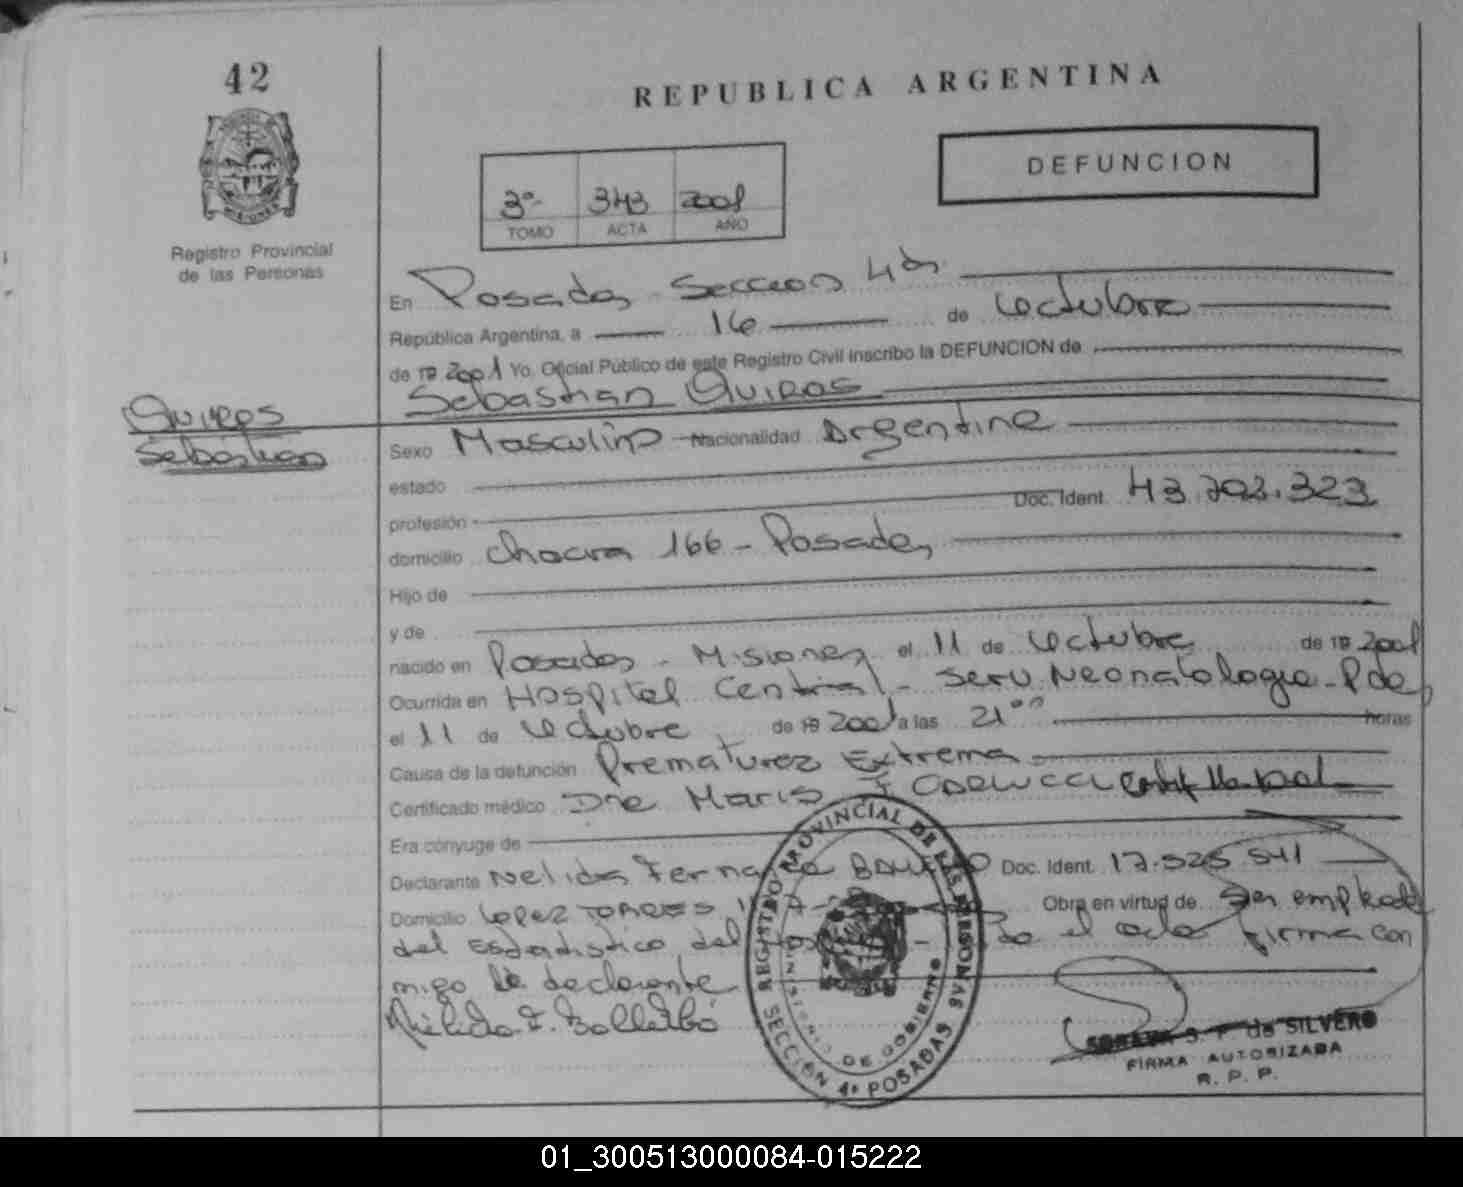 42
REPUBLICA ARGENTINA
DEFUNCION
3º 343 2001
TOMO ACTA AÑO
Registro Provincial
de las Personas
En Posadas Seccion 4ta
República Argentina, a 16 de Octubre
de 19 2001 Yo, Oficial Público de este Registro Civil inscribo la DEFUNCION de
Sebastian Quiros
Quiros
Sebastian
Sexo Masculino Nacionalidad Argentina
estado
profesión Doc. Ident. 43.703.323
domicilio Chacra 166 - Posadas
Hijo de
y de
nacido en Posadas - Misiones el 11 de Octubre de 19 2001
Ocurrida en Hospital Central - Serv. Neonatologia - Pdas
el 11 de Octubre de 19 2001 a las 21ºº horas
Causa de la defunción Prematurez Extrema
Certificado médico Dra Maris
Era cónyuge de
Declarante Nelida Doc. Ident. 17.525.541
Domicilio Lopez Torres Obra en virtud de Ser emplead
del Estadistica del el acto firma con
migo la declarante
REGISTRO PROVINCIAL DE LAS PERSONAS
MINISTERIO DE GOBIERNO
SECCIÓN 4ª POSADAS
S. F. de SILVERO
FIRMA AUTORIZADA
R. P. P.
01_300513000084-015222